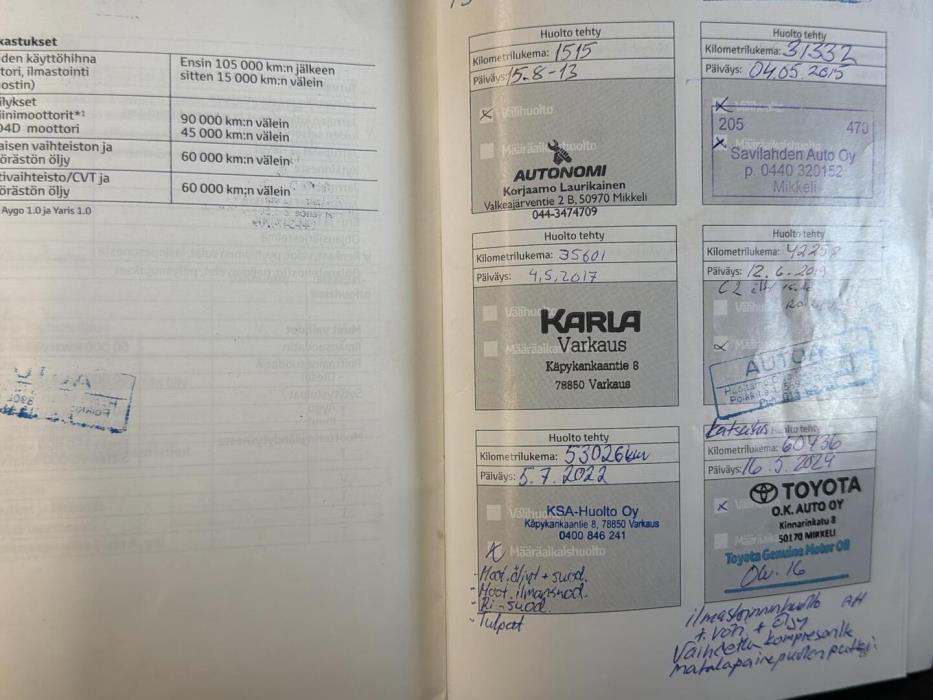 kastukset
den käyttöhihna
tori, ilmastointi
ostin)
Ensin 105 000 km:n jälkeen
sitten 15 000 km:n välein
lykset
iinimoottorit*¹
04D moottori
90 000 km:n välein
45 000 km:n välein
aisen vaihteiston ja
örästön öljy
60 000 km:n välein
tivaihteisto/CVT ja
örästön öljy
60 000 km:n välein
Aygo 1.0 ja Yaris 1.0
Huolto tehty
Kilometrilukema: 1515
Päiväys: 15.8-13
Välihuolto
Määräaikaishuolto
AUTONOMI
Korjaamo Laurikainen
Valkeajärventie 2 B, 50970 Mikkeli
044-3474709
Huolto tehty
Kilometrilukema: 31332
Päiväys: 04.05.2015
205 470
Savilahden Auto Oy
p. 0440 320152
Mikkeli
Huolto tehty
Kilometrilukema: 35601
Päiväys: 4,5,2017
Välihuolto
Määräaikai
KARLA
Varkaus
Käpykankaantie 8
78850 Varkaus
Huolto tehty
Kilometrilukema: 42258
Päiväys: 12.6.2019
Välihuo
Huolto tehty
Kilometrilukema: 53026km
Päiväys: 5.7.2022
Välihuol
KSA-Huolto Oy
Käpykankaantie 8, 78850 Varkaus
0400 846 241
Määräaikaishuolto
- Moot.öljyt + suod.
- Moot.ilmansuod.
- Ri-suod
- Tulpat
Katsastus Huolto tehty
Kilometrilukema: 60436
Päiväys: 16.5.2024
TOYOTA
O.K. AUTO OY
Kinnarinkatu 8
50170 MIKKELI
Toyota Genuine Motor Oil
0w-16
ilmastoinninhuolto AH
+ Vori + öljy
Vaihdettu kompressorilta
matalapainepuolen putki